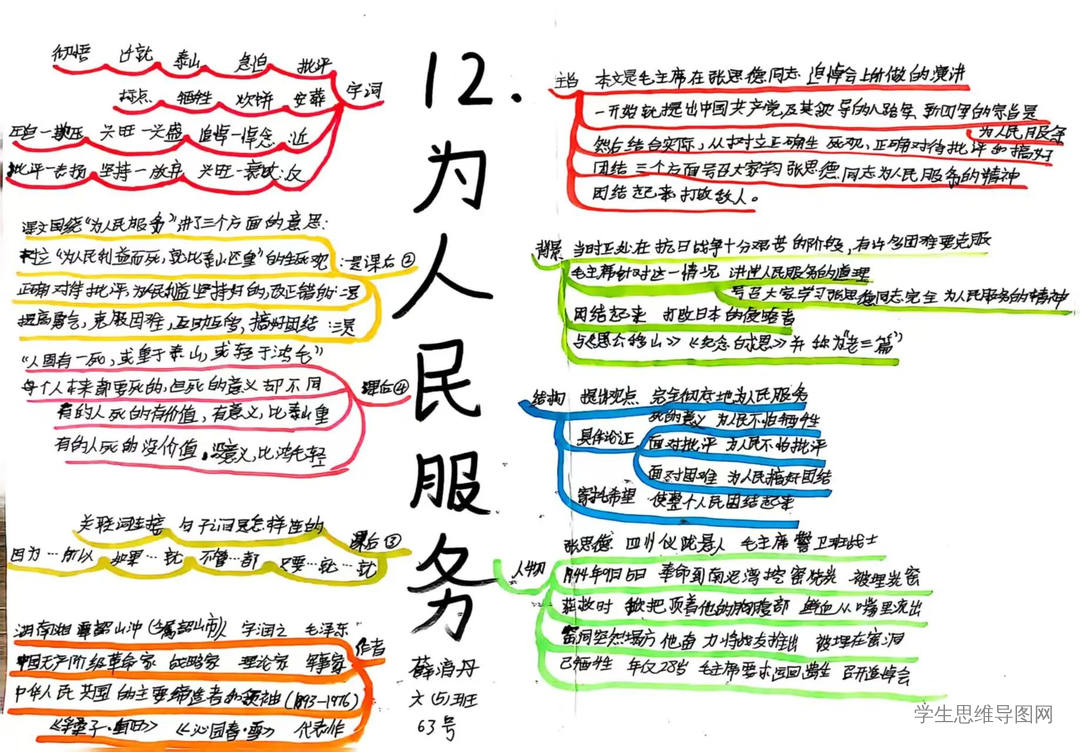 12.为人民服务
薛消丹
六(5)班
63号
字词
彻悟 迁就 泰山 急迫 批评
标点 牺牲 炊饼 安葬
压迫—欺压 兴旺—兴盛 追悼—悼念 :近
批评—表扬 坚持—放弃 兴旺—衰败:反
课后②
课文围绕“为人民服务”讲了三个方面的意思:
树立“为人民利益而死,就比泰山还重”的生死观 :一是
正确对待批评,为人民利益坚持好的,改正错的:二是
提高勇气,克服困难,互助互爱,搞好团结 :三是
课后④
“人固有一死,或重于泰山,或轻于鸿毛”
每个人本来都要死的,但死的意义却不同
有的人死的有价值,有意义,比泰山重
有的人死的没价值,没意义,比鸿毛轻
课后③
关联词连接 句子之间是怎样连的
因为…所以 如果…就 不管…都 只要…就…就
作者
湖南湘潭韶山冲(今属韶山市),字润之 毛泽东
中国无产阶级革命家 战略家 理论家 军事家
中华人民共国的主要缔造者和领袖(1893—1976)
《沁园春·雪》 代表作
主旨 本文是毛主席在张思德同志追悼会上所做的演讲
一开始就提出中国共产党及其领导的八路军、新四军的宗旨是
为人民服务
然后结合实际,从树立正确生死观,正确对待批评的搞好
团结三个方面号召大家学习张思德同志为人民服务的精神
团结起来打败敌人。
背景 当时正处在抗日战争十分艰苦的阶段,有许多困难要克服
毛主席针对这一情况 讲为人民服务的道理
号召大家学习张思德同志完全为人民服务的精神
团结起来 打败日本的侵略者
与《愚公移山》《纪念白求恩》并称为“老三篇”
结构 提出观点 完全彻底地为人民服务
具体论证
死的意义 为人民不怕牺牲
面对批评 为人民不怕批评
面对困难 为人民搞好团结
寄托希望 使整个人民团结起来
人物
张思德 四川仪陇县人 毛主席警卫班战士
1944年9月5日 革命到南泥湾挖窑烧炭 被埋炭窑
抢救时 锨把顶着他的胸腹部 鲜血从嘴里流出
窑洞突然塌方 他奋力将战友推出 被埋在窑洞
已牺牲 年仅28岁 毛主席要求运回遗体 召开追悼会
学生思维导图网